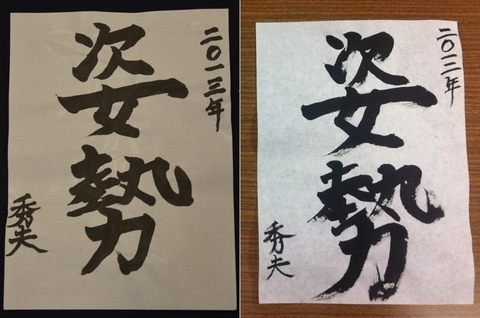 二〇一三年
姿勢
秀夫
二〇一二年
姿勢
秀夫